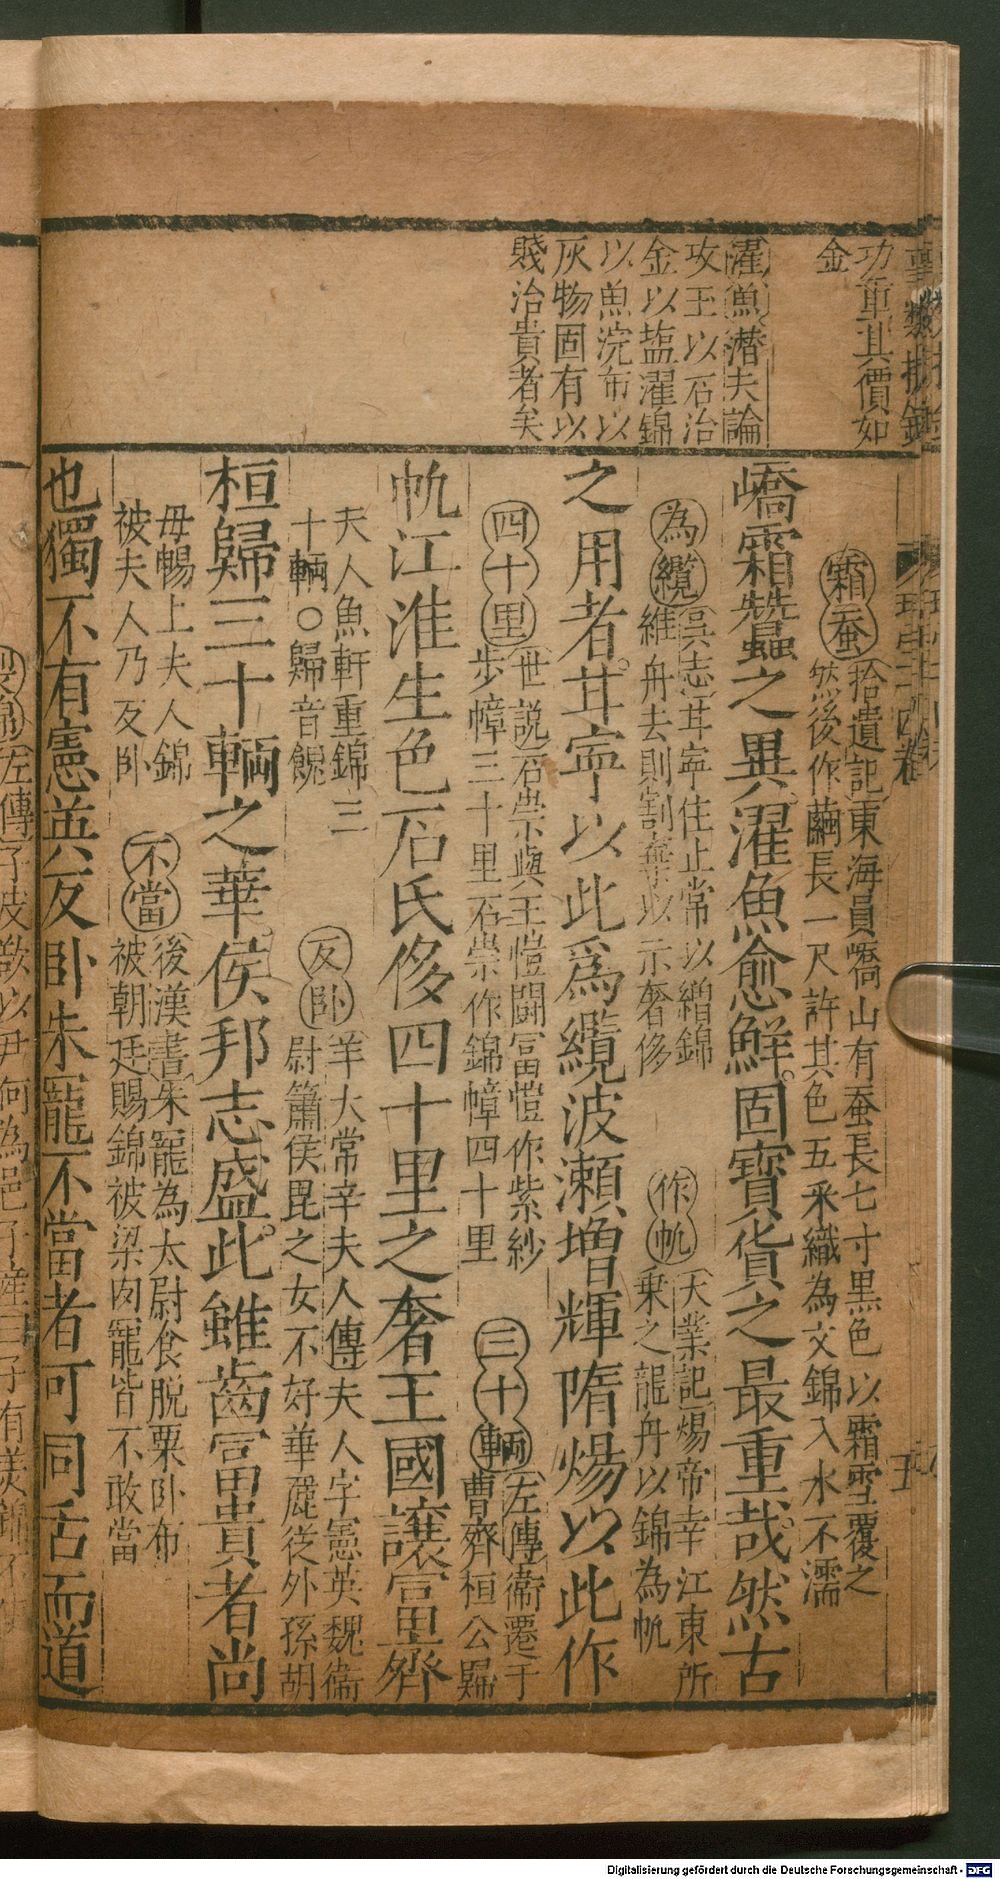 功重其價如
金
濯魚潜夫論
攻玉以石治
金以塩濯錦
以魚浣布以
灰物固有以
賤治貴者矣
霜蚕
拾遺記東海員嶠山有蚕長七寸黒色以霜雪覆之
然後作繭長一尺許其色五采織為文錦入水不濡
嶠霜蠶之異濯魚愈鮮固寳貨之最重哉然古
為纜
吳志甘寧住止常以繒錦
維舟去則割棄以示奢侈
作帆
大業記煬帝幸江東所
乗之龍舟以錦為帆
之用者甘寧以此爲纜波瀬増輝隋煬以此作
四十里
世說石崇與王愷鬪富愷作紫紗
步幛三十里石崇作錦幛四十里
三十輌
左傳衞遷于
曹齊桓公歸
帆江淮生色石氏侈四十里之奢王國讓富齊
夫人魚軒重錦三
十輌○歸音餽
反卧
羊太常辛夫人傳夫人字憲英魏衞
尉簫侯毘之女不好華麗從外孫胡
桓歸三十輌之華侯邦志盛此雖齒富貴者尚
母暢上夫人錦
被夫人乃反卧
不當
後漢書朱寵為太尉食脱粟卧布
被朝廷賜錦被梁肉寵皆不敢當
也獨不有憲英反卧朱寵不當者可同舌而道
製錦
左傳子皮欲以尹何為邑子産曰子有美錦不使
Digitalisierung gefördert durch die Deutsche Forschungsgemeinschaft - DFG